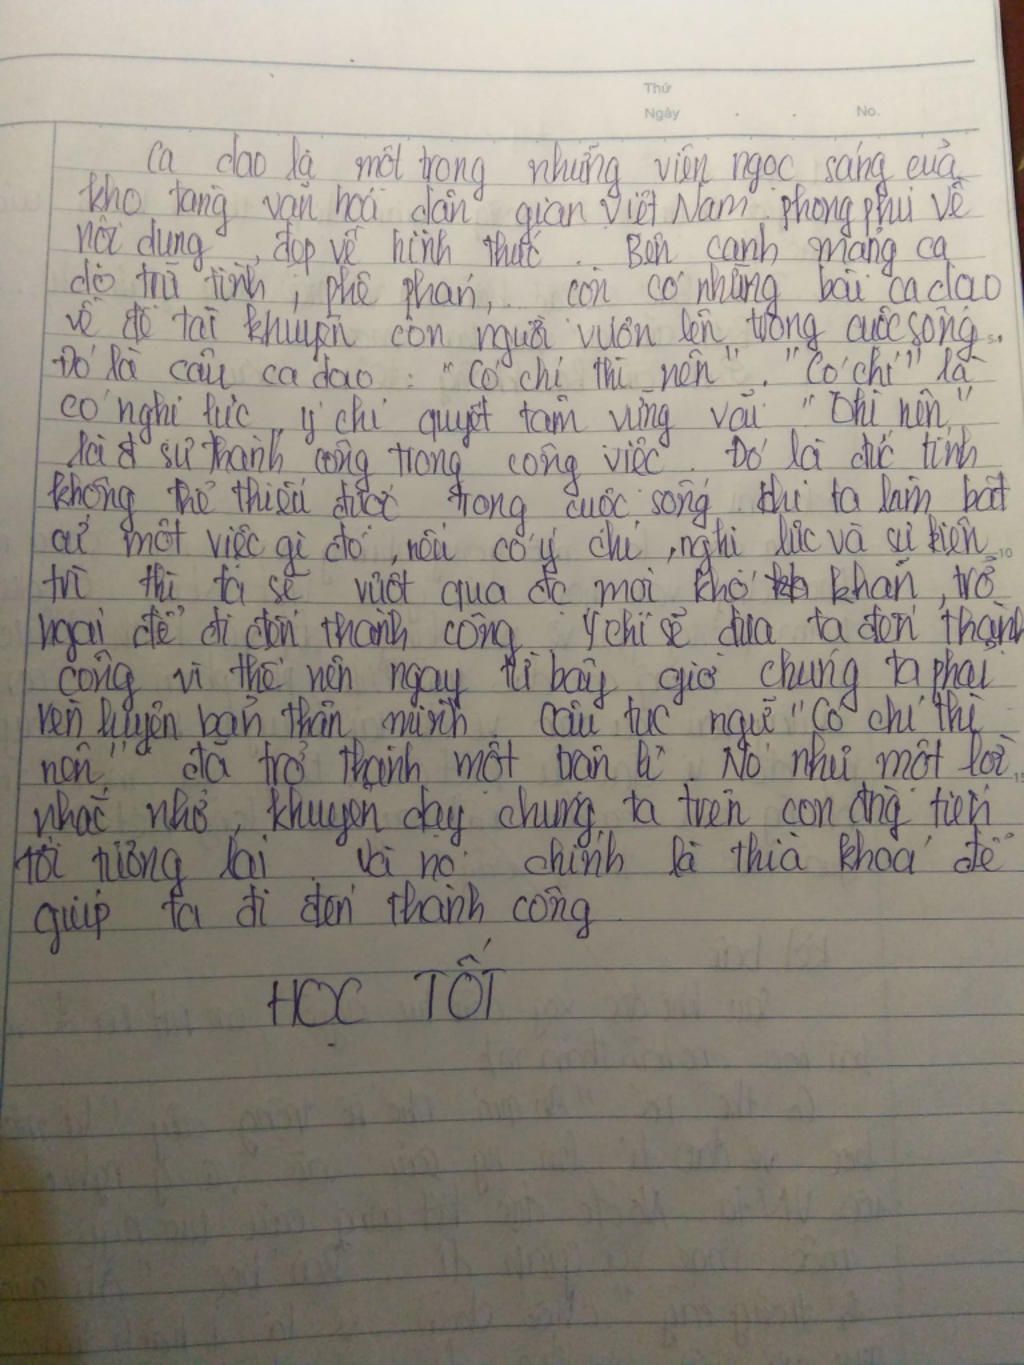 Thứ
Ngày No.
Ca dao là một trong những viên ngọc sáng của
kho tàng văn hoá dân gian Việt Nam. phong phú về
nội dung, đẹp về hình thức. Bên cạnh mảng ca
dao trữ tình, phê phán, còn có những bài ca dao
về đề tài khuyên con người vươn lên trong cuộc sống.
Đó là câu ca dao: "Có chí thì nên". "Có chí" là
có nghị lực, ý chí quyết tâm vững vàu "Thì nên"
là sự thành công trong công việc. Đó là đức tính
không thể thiếu được trong cuộc sống khi ta làm bất
cứ một việc gì đó, nếu có ý chí, nghị lực và sự kiên
trì thì ta sẽ vượt qua đc mọi khó khăn, trở
ngại để đi đến thành công. Ý chí sẽ đưa ta đến thành
công vì thế nên ngay từ bây giờ chúng ta phải
rèn luyện bản thân mình. Câu tục ngữ "Có chí thì
nên" đã trở thành một trân lí. Nó như một lời
nhắc nhở, khuyên dạy chúng ta trên con đng tiến
tới tương lai và nó chính là thìa khoá để
giúp ta đi đến thành công
HỌC TỐT